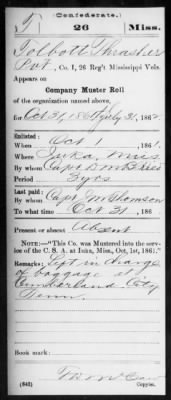 (Confederate.)
T 26 Miss.
Tolbott Thrasher
Pvt., Co. I, 26 Reg't Mississippi Vols.
Appears on
Company Muster Roll
of the organization named above,
for Oct 31, 1861 July 31, 1862.
Enlisted:
When Oct 1, 1861.
Where Iuka, Miss
By whom Capt
Period 3 yrs
Last paid:
By whom Capt. Thomson
To what time Oct 31, 186
Present or absent Absent
NOTE:—"This Co. was Mustered into the service of the C. S. A. at Iuka, Miss, Oct 1st, 1861."
Remarks: Left in charge
of baggage at
Cumberland City
Tenn.
Book mark:
(642) Copyist.